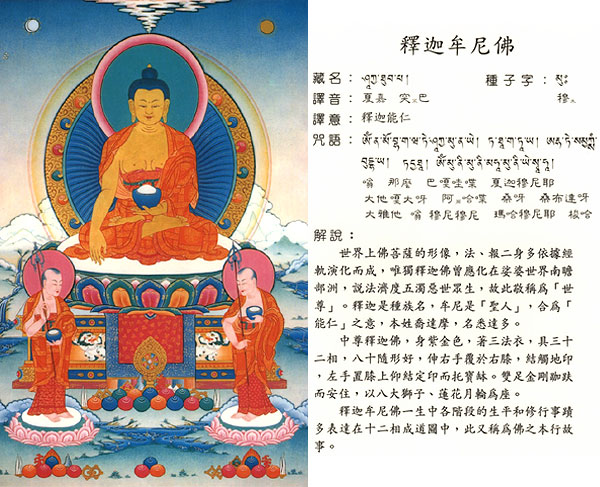 釋迦牟尼佛
藏名：ཤཱཀྱ་ཐུབ་པ། 種子字：མུཿ
譯音：夏嘉 突巴 穆
譯意：釋迦能仁
咒語：
嗡 那麼 巴嘎哇喋 夏迦穆尼耶
大他嘎大呀 阿哈喋 桑呀 桑布達呀
大雅他 嗡 穆尼穆尼 瑪哈穆尼耶 梭哈
解說：
世界上佛菩薩的形像，法、報二身多依據經
軌演化而成，唯獨釋迦佛曾應化在娑婆世界南瞻
部洲，說法濟度五濁惡世眾生，故此敬稱爲「世
尊」。釋迦是種族名，牟尼是「聖人」，合爲「
能仁」之意，本姓喬達摩，名悉達多。
中尊釋迦佛，身紫金色，著三法衣，具三十
二相，八十隨形好，伸右手覆於右膝，結觸地印
，左手置膝上仰結定印而托寶缽。雙足金剛跏趺
而安住，以八大獅子、蓮花月輪爲座。
釋迦牟尼佛一生中各階段的生平和修行事蹟
多表達在十二相成道圖中，此又稱爲佛之本行故
事。